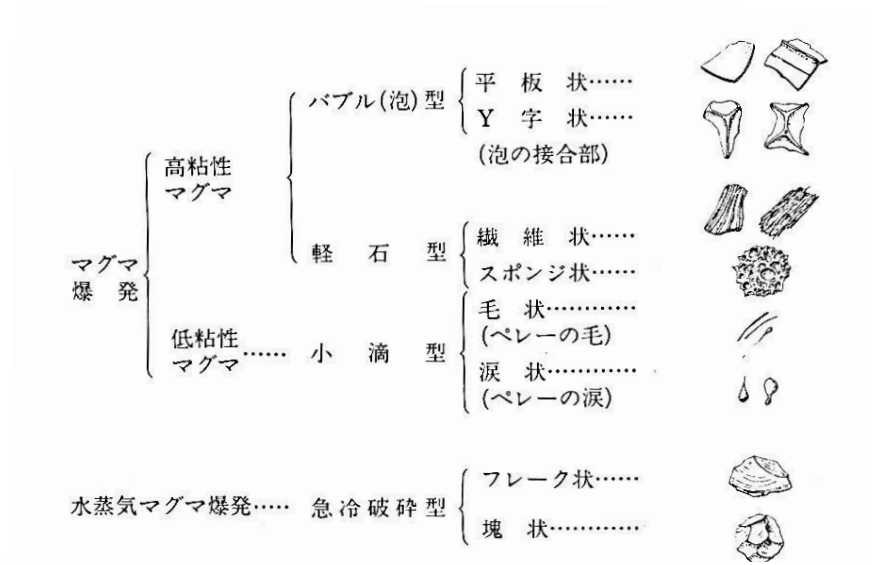 マグマ爆発
高粘性マグマ
バブル(泡)型
平板状……
Y字状……
(泡の接合部)
軽石型
繊維状……
スポンジ状……
低粘性マグマ……
小滴型
毛状…………
(ペレーの毛)
涙状…………
(ペレーの涙)
水蒸気マグマ爆発……
急冷破砕型
フレーク状……
塊状…………